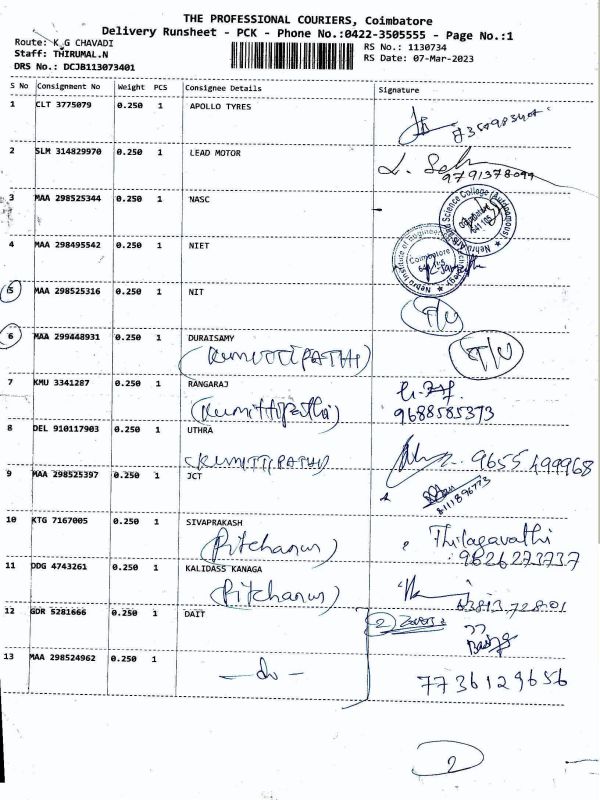 THE PROFESSIONAL COURIERS, Coimbatore
Delivery Runsheet - PCK - Phone No.:0422-3505555 - Page No.:1
Route: K G CHAVADI
RS No.: 1130734
Staff: THIRUMAL.N
RS Date: 07-Mar-2023
DRS No.: DCJB113073401
S No Consignment No Weight PCS Consignee Details Signature
1 CLT 3775079 0.250 1 APOLLO TYRES
2 SLM 314829970 0.250 1 LEAD MOTOR
9791378099
3 MAA 298525344 0.250 1 NASC
4 MAA 298495542 0.250 1 NIET
5 MAA 298525316 0.250 1 NIT
T/U
6 MAA 299448931 0.250 1 DURAISAMY
(KUMITTIPATHI) T/U
7 KMU 3341287 0.250 1 RANGARAJ
(Kumittipathi) 9688585373
8 DEL 910117903 0.250 1 UTHRA
(KUMITTIPATHI) 9655499968
9 MAA 298525397 0.250 1 JCT
8111896773
10 KTG 7167005 0.250 1 SIVAPRAKASH
(Pitchanur) Thilagavathi
9626273737
11 DDG 4743261 0.250 1 KALIDASS KANAGA
(Pitchanur)
12 GDR 5281666 0.250 1 DAIT
13 MAA 298524962 0.250 1
- do - 7736129656
2